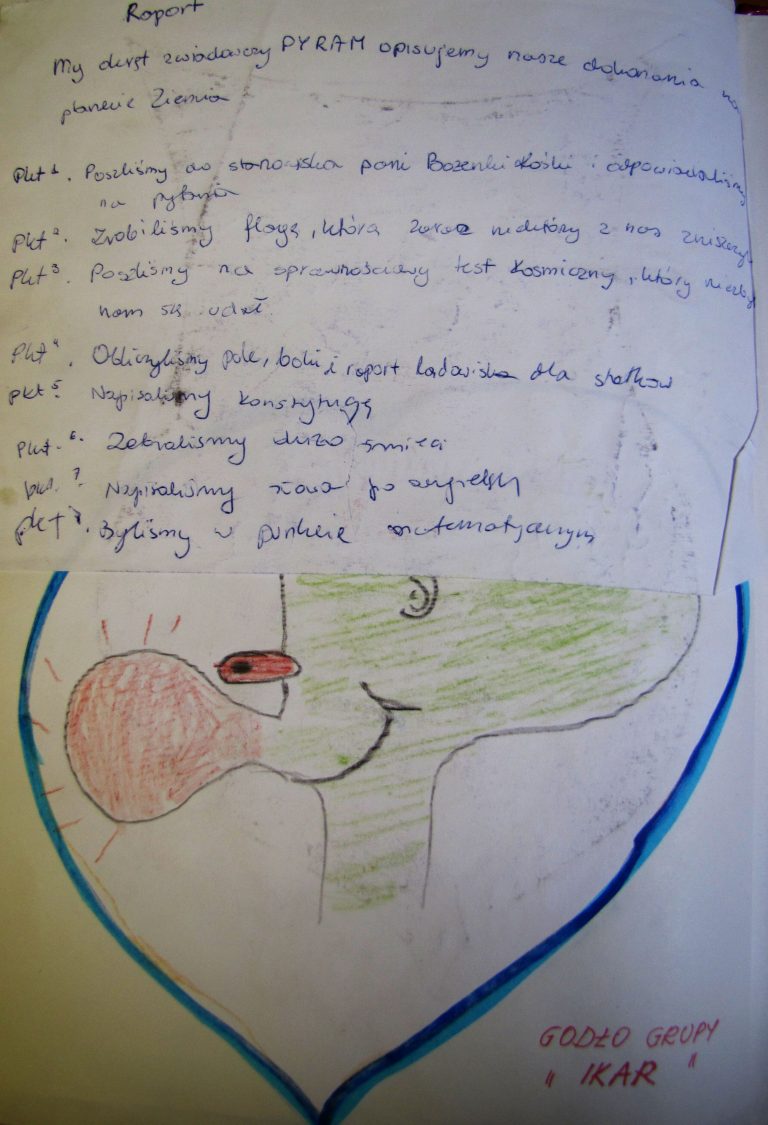 Raport
My okręt zwiadowczy PYRAM opisujemy nasze dokonania na
planecie Ziemia
Pkt 1. Poszliśmy do stanowiska pani Bożenki i odpowiadaliśmy
na pytania
Pkt 2. Zrobiliśmy flagę, którą zaraz niektóry z nas zniszczył
Pkt 3. Poszliśmy na sprawnościowy test kosmiczny, który niezbyt
nam się udał
Pkt 4. Obliczyliśmy pole, boki i raport lądowiska dla statków
pkt 5. Napisaliśmy konstytucję
Pkt. 6. Zebraliśmy dużo śmieci
pkt. 7 Napisaliśmy słowa po angielsku
pkt 8. Byliśmy w punkcie matematycznym
GODŁO GRUPY
" IKAR "